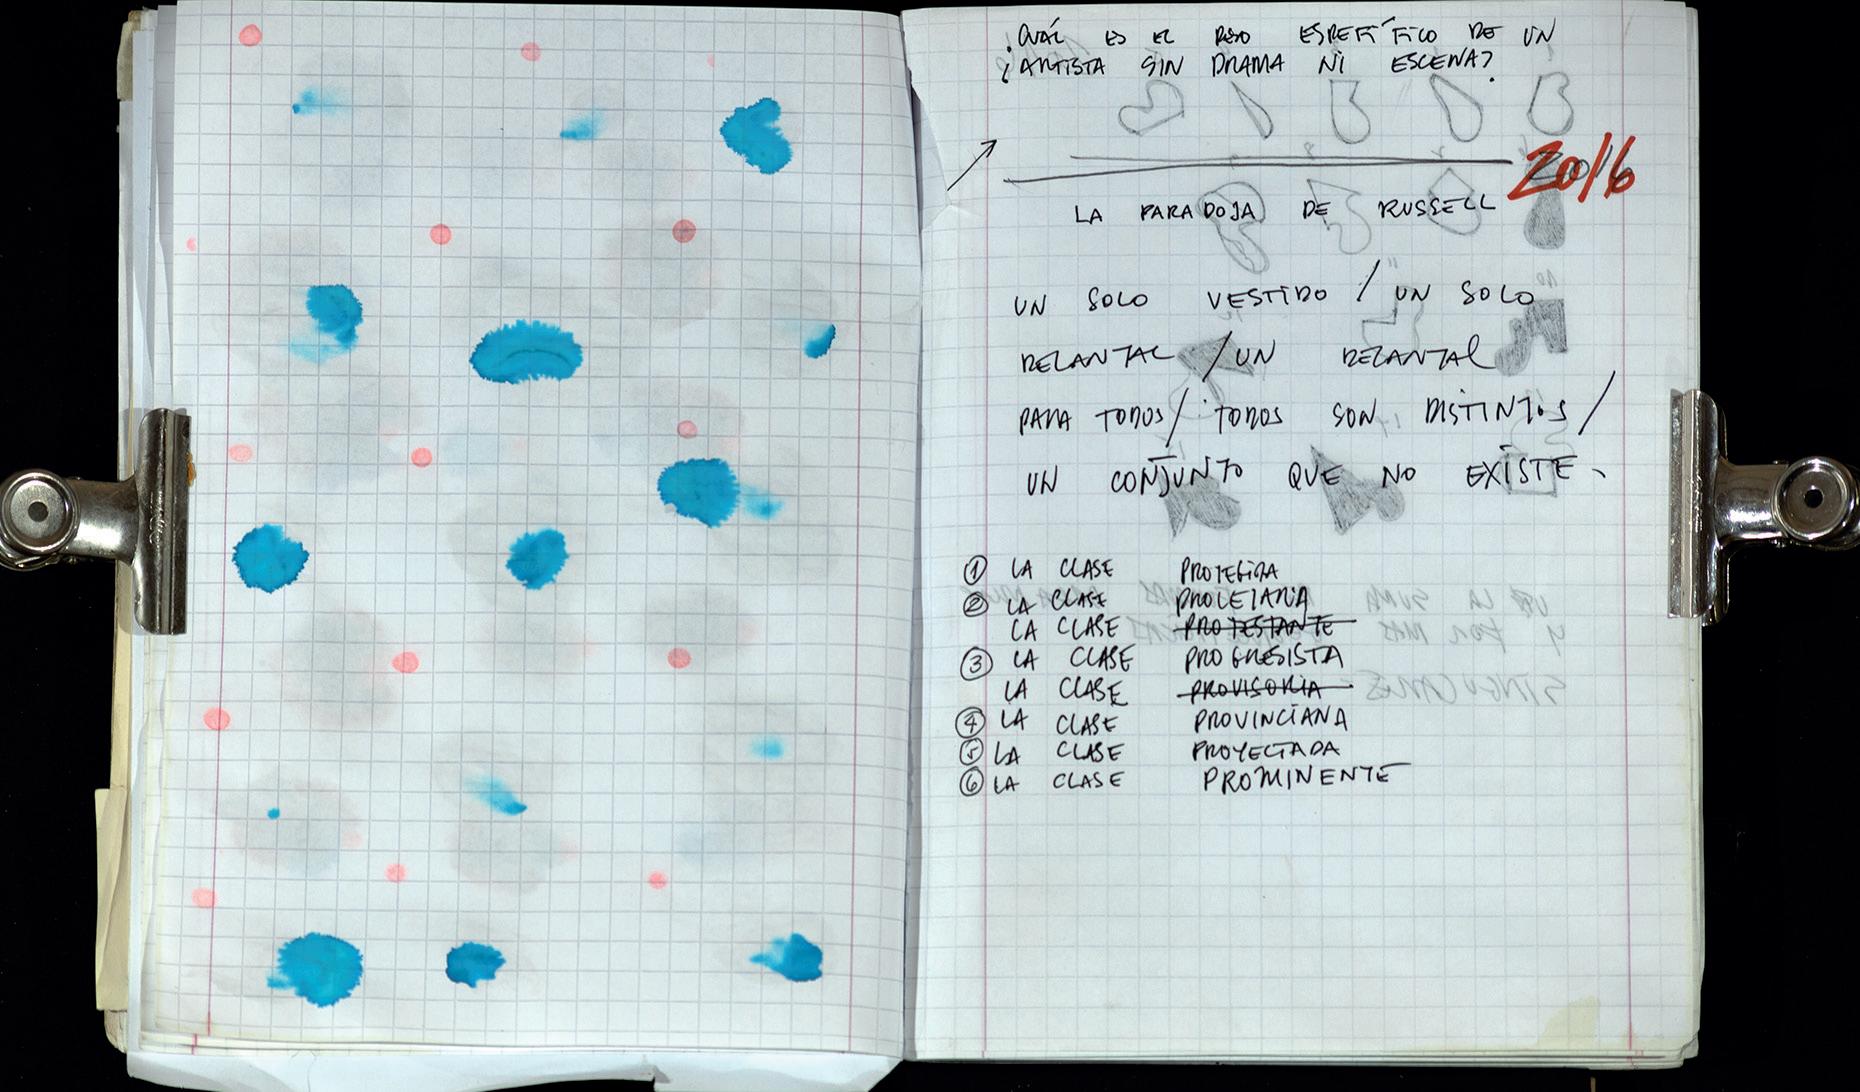 ¿CUÁL ES EL PESO ESPECÍFICO DE UN
¿ARTISTA SIN DRAMA NI ESCENA?
2016
LA PARADOJA DE RUSSELL
UN SOLO VESTIDO / UN SOLO
DELANTAL / UN DELANTAL
PARA TODOS / TODOS SON DISTINTOS /
UN CONJUNTO QUE NO EXISTE.
① LA CLASE PROTEGIDA
② LA CLASE PROLETARIA
LA CLASE PROTESTANTE
③ LA CLASE PROGRESISTA
LA CLASE PROVISORIA
④ LA CLASE PROVINCIANA
⑤ LA CLASE PROYECTADA
⑥ LA CLASE PROMINENTE